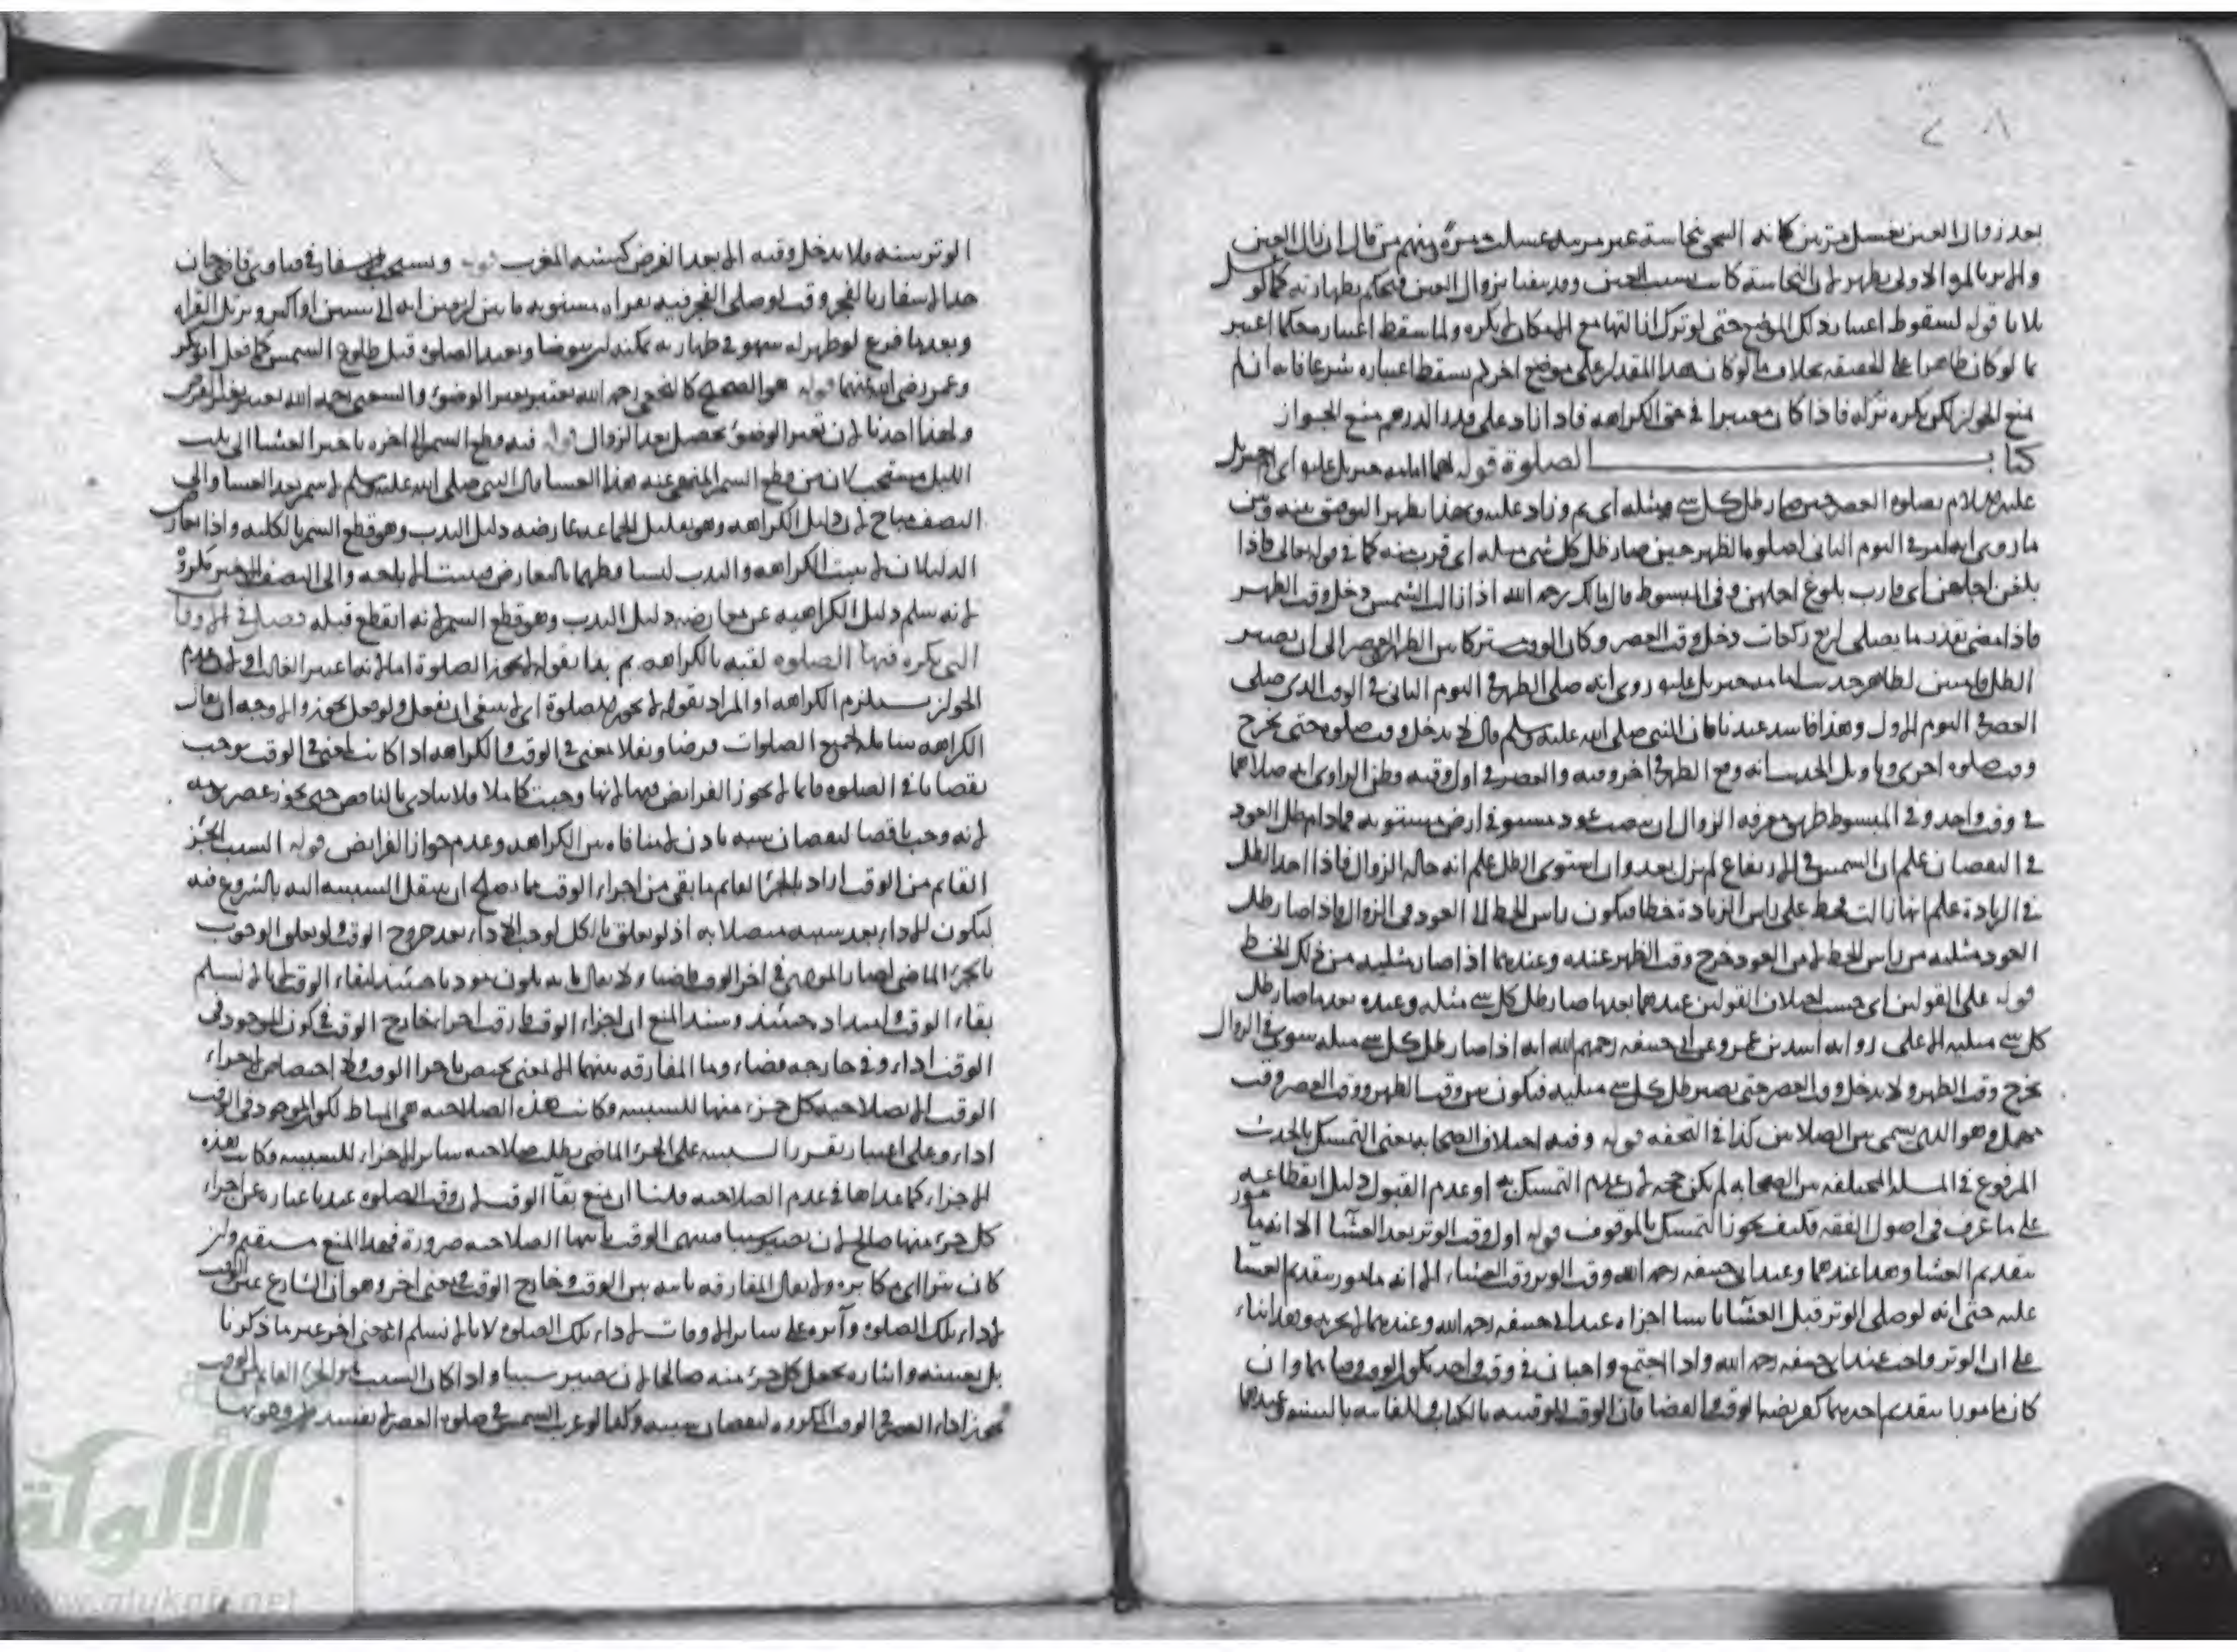 بعد زوال العين يغسل مرتين كانه التحق بنجاسة غير مرئية غسلت مرة ومنهم من قال ان زال العين
والاثر بالمرة الاولى يطهر لان النجاسة كانت بسبب العين وقد تيقنا بزوال العين فيحكم بطهارته كما لو غسل
بلا ما قوله لسقوط اعتبار ذلك الموضع حتى لو ترك ازالتها مع الامكان لا يكره ولما سقط اعتباره حكما اعتبر
بما لو كان طاهرا على الحقيقة بخلاف ما لو كان هذا المقدار على موضع اخر لم يسقط اعتباره شرعا فانه ان لم
يمنع الجواز لكن يكره تركه فاذا كان معتبرا في حق الكراهة فاذا زاد على قدر الدرهم منع الجواز
كتاب الصلوة قوله امامة جبريل عليه اى ام جبريل
عليه السلام بصلوة العصر حين صار ظل كل شى مثله اى تم وزاد عليه وبهذا يظهر التوفيق بينه وبين
ما روى انه ام في اليوم الثانى لصلوة الظهر حين صار ظل كل شى مثله اى قرب منه كما في قوله تعالى فاذا
بلغن اجلهن اى قارب بلوغ اجلهن وفى المبسوط قال مالك رحمه الله اذا زالت الشمس دخل وقت الظهر
فاذا مضى بقدر ما يصلى اربع ركعات دخل وقت العصر وكان الوقت مشتركا بين الظهر والعصر الى ان يصير
الظل قامتين لظاهر حديث امامة جبريل عليه روى انه صلى الظهر في اليوم الثانى في الوقت الذى صلى
العصر في اليوم الاول وهذا فاسد عندنا فان النبى صلى الله عليه وسلم قال لا يدخل وقت صلوة حتى يخرج
وقت صلوة اخرى وتاويل الحديث انه وقع الظهر في اخر وقته والعصر في اول وقته وظن الراوى انه صلاهما
في وقت واحد وفى المبسوط طريق معرفة الزوال ان ينصب عود مستو في ارض مستوية فما دام ظل العود
في النقصان علم ان الشمس في الارتفاع لم تزل بعد وان استوى الظل علم انه حالة الزوال فاذا اخذ الظل
في الزيادة علم انها زالت فخط على راس الزيادة خطا فيكون راس الخط الى العود فى الزوال فاذا صار ظل
العود مثليه من راس الخط لا من العود خرج وقت الظهر عنده وعندهما اذا صار مثليه من ذلك الخط
قوله على القولين اى حسب اختلاف القولين عندهما بعد ما صار ظل كل شى مثله وعنده بعد ما صار ظل
كل شى مثليه الا على رواية اسد بن عمرو عن ابى حنيفة رحمهم الله انه اذا صار ظل كل شى مثله سوى فئ الزوال
يخرج وقت الظهر ولا يدخل وقت العصر حتى يصير ظل كل شى مثليه فيكون بين وقت الظهر ووقت العصر وقت
مهمل وهو الذى يسمى بين الصلاتين كذا في التحفة قوله وفيه اختلاف الصحابة يعنى التمسك بالحديث
المرفوع في المسئلة المختلفة بين الصحابة لم يكن حجة لان عدم التمسك به او عدم القبول دليل انقطاعه
على ما عرف فى اصول الفقه فكيف يجوز التمسك بالموقوف قوله اول وقت الوتر بعد العشا الا انه مامور
بتقديم العشا وهذا عندهما وعند ابى حنيفة رحمه الله وقت الوتر وقت العشاء الا انه مامور بتقديم العشا
عليه حتى انه لو صلى الوتر قبل العشا ناسيا اجزاه عند ابى حنيفة رحمه الله وعندهما لا يجزيه وهذا بناء
على ان الوتر واجب عند ابى حنيفة رحمه الله واذا اجتمع واجبان في وقت واحد يكون الوقت وقتا لهما وان
كان مامورا بتقديم احديهما كفريضة الوقت والفضا
الوتر سنة فلا يدخل وقته الا بعد الفرض كسنة المغرب قوله ويستحب الاسفار في فتاوى قاضى خان
حد الاسفار بالفجر وقت لو صلى الفجر فيه بقراءة مسنونة ما بين اربعين اية الى ستين او اكثر ويرتل القراءة
وبعد ما فرغ لو ظهر له سهو في طهارته يمكنه ان يتوضا ويعيد الصلوة قبل طلوع الشمس كما فعل ابو بكر
وعمر رضى الله عنهما قوله هو الصحيح كان النخعى رحمه الله يعتبر تغير الضوء والشعبى رحمه الله تغير القرص
وبهذا اخذنا لان تغير الضوء يحصل بعد الزوال قوله فيه قطع السمر الى اخره تاخير العشا الى ثلث
الليل مستحب لان من قطع السمر المنهى عنه بعد العشا قال النبى صلى الله عليه وسلم لا سمر بعد العشا والى
النصف مباح لان دليل الكراهة وهو تقليل الجماعة عارضه دليل الندب وهو قطع السمر بالكلية واذا تعارض
الدليلان لا يثبت الكراهة والندب لتساقطهما بالتعارض فيثبت الاباحة والى النصف الاخير مكروه
لانه سلم دليل الكراهية عن معارضة دليل الندب وهو قطع السمر لانه انقطع قبله فصل في الاوقات
التى يكره فيها الصلوة لقبه بالكراهة ثم بدا بقوله لا يجوز الصلوة
الجواز يستلزم الكراهة او المراد بقوله لا يجوز الصلوة اى لا ينبغى ان يفعل ولو فعل يجوز والاوجه ان يقال
الكراهة شاملة لجميع الصلوات فرضا ونفلا لمعنى في الوقت والكراهة اذا كانت لمعنى في الوقت يوجب
نقصانا في الصلوة وانما لا يجوز الفرائض فيها لانها وجبت كاملا فلا يتادى بالناقص حتى يجوز عصر يومه
لانه وجب ناقصا لنقصان سببه فاذن لا منافاة بين الكراهة وعدم جواز الفرايض قوله السبب الجزء
القائم من الوقت اراد بالجزء القائم ما بقى من اجزاء الوقت مما يصلح ان ينتقل السببية اليه بالشروع فيه
ليكون الاداء بعد سببه متصلا به اذ لو تعلق بالكل لوجب الاداء بعد خروج الوقت ولو تعلق الوجوب
بالجزء الماضى لصار المؤدى في اخر الوقت قاضيا ولا يقال بانه يكون مؤديا حينئذ لبقاء الوقت لانا لا نسلم
بقاء الوقت حينئذ وسند المنع ان اجزاء الوقت فارقت اجزاء خارج الوقت في كون الموجود فى
الوقت اداء وفى خارجه قضاء وما المفارقة بينهما الا لمعنى يختص باجزاء الوقت ولا اختصاص لاجزاء
الوقت الا بصلاحية كل جزء منها للسببية فكانت هذه الصلاحية هى المناط لكون الموجود فى الوقت
اداء وعلى اعتبار تقرر السببية على الجزء الماضى يبطل صلاحية سائر الاجزاء للسببية فكانت هذه
الاجزاء كما عداها في عدم الصلاحية فلنا ان نمنع بقاء الوقت لان وقت الصلوة عندنا عبارة عن اجزاء
كل جزء منها صالح لان يصير سببا فينتهى الوقت بانتهاء الصلاحية ضرورة فهذا المنع مستقيم وان
كان يترااى مكابرة ولا يقال المفارقة ثابتة بين الوقت وخارج الوقت بمعنى اخر وهو ان الشارع عين الوقت
لاداء تلك الصلوة وآثره على سائر الاوقات لاداء تلك الصلوة لانا لا نسلم انه بمعنى اخر غير ما ذكرنا
بل تعيينه وايثاره بجعل كل جزء منه صالحا لان يصير سببا واذا كان السبب هو الجزء القائم من الوقت
يجوز اداء العصر في الوقت المكروه لنقصان سببه